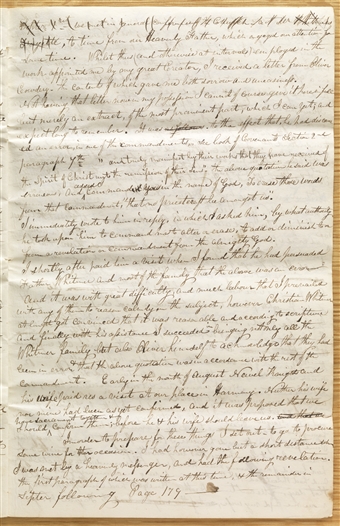 to time, from our Heavenly Father, which engaged our attention for
some time. Whilst thus (and otherwise at intervals) employed in the
work appointed me by my great Creator, I received a letter from Oliver
Cowdery— the contents of which gave me both sorrow and uneasiness.
Not having that letter now in my possession, I cannot of course give it here in full
but merely an extract, of the most prominent parts, which I can yet, and
expect long to remember. to the effect that he had discover
ed an error in one of the commandments, see book of Covenants Section 2nd
paragraph 7th " and truly manifest by their works that they have received of
the spirit of Christ unto the remission of their sins". The above quotation he said was
erroneous, and commanded me in the name of God, to erase those words
from that commandment, that no priestcraft be amongst us.
I immediately wrote to him in reply, in which I asked him, by what authority
he took upon him to command me to alter, or erase, to add or diminish to or
from a revelation or commandment from the Almighty God.
I shortly after paid him a visit when I found that he had persuaded
Father Whitmer and most of the family that the above was an error
And it was with great difficulty, and much labour that I prevailed
with any of them to reason calmly on the subject, however Christian Whitmer
at length got convinced that it was reasonable and according to scripture
and finally with his assistance I succeeded in bringing not only all the
Whitmer family, but also Oliver himself to acknowledge that they had
been in error & that the above quotation was in accordance with the rest of the
commandment. Early in the month of August Newel Knight and
his wife paid us a visit, at our place in Harmony. Neither his wife
nor mine had been as yet confirmed, and it was proposed that we
should confirm them, before he & his wife should leave us.
In order to prepare for these things I set out to go to procure
some wine for the occasion. I had however gone but a short distance when
I was met by a heavenly messenger, and had the following revelation.
the first paragraph of which was written at this time, & the remainder in
September following— Page 179—